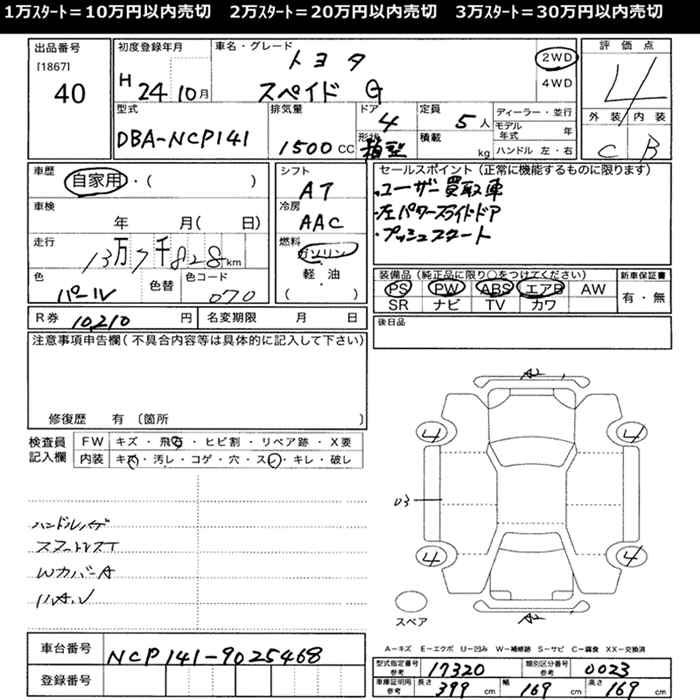 1万ｽﾀｰﾄ＝10万円以内売切　2万ｽﾀｰﾄ＝20万円以内売切　3万ｽﾀｰﾄ＝30万円以内売切
出品番号
[1867]
40
初度登録年月
H 24 10月
車名・グレード
トヨタ
スペイド G
2WD
4WD
評価点
4
外装 内装
C B
型式
DBA-NCP141
排気量
1500 CC
ドア
4
形状
箱型
定員
5人
積載
kg
ディーラー・並行
モデル年式 年
ハンドル 左・右
車歴
自家用・( )
車検
年 月( 日)
走行
13万7千828km
色
パール
色替
色コード
070
シフト
AT
冷房
AAC
燃料
ガソリン
軽・油
( )
セールスポイント（正常に機能するものに限ります）
・ユーザー買取車
・左パワースライドドア
・プッシュスタート
装備品（純正品に限り○をつけてください）
PS PW ABS エアB AW
SR ナビ TV カワ
新車保証書
有・無
R券 10210 円
名変期限 月 日
後日品
注意事項申告欄（不具合内容等は具体的に記入して下さい）
修復歴 有（箇所
検査員
記入欄
FW キズ・飛石・ヒビ割・リペア跡・X要
内装 キズ・汚レ・コゲ・穴・スレ・キレ・破レ
ハンドルハゲ
WカバーA
A2
4 4
03
4 4
A2
スペア
A−キズ E−エクボ U−凹み W−補修跡 S−サビ C−腐食 XX−交換済
車台番号
NCP141-9025468
登録番号
型式指定番号 参考 17320
類別区分番号 参考 0023
車庫証明用 参考 長さ 399 cm 幅 169 cm 高さ 169 cm